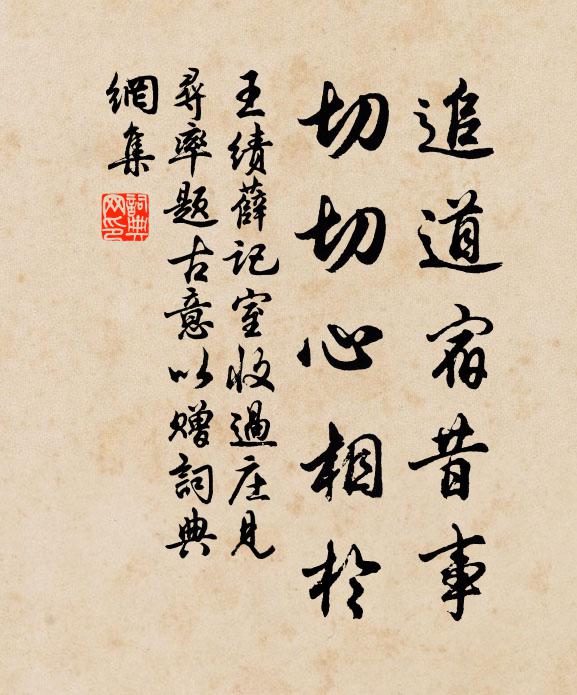 追道宿昔事
切切心相於
王績薛記室收過庄見
尋率題古意以贈詞典
網集
詞典網印